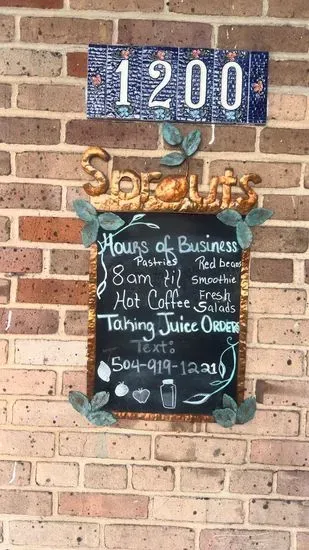 1200
Sprouts
Hours of Business
Pastries Red beans
8am til Smoothie
Hot Coffee Fresh Salads
Taking Juice ORDERS
Text:
504-919-1221